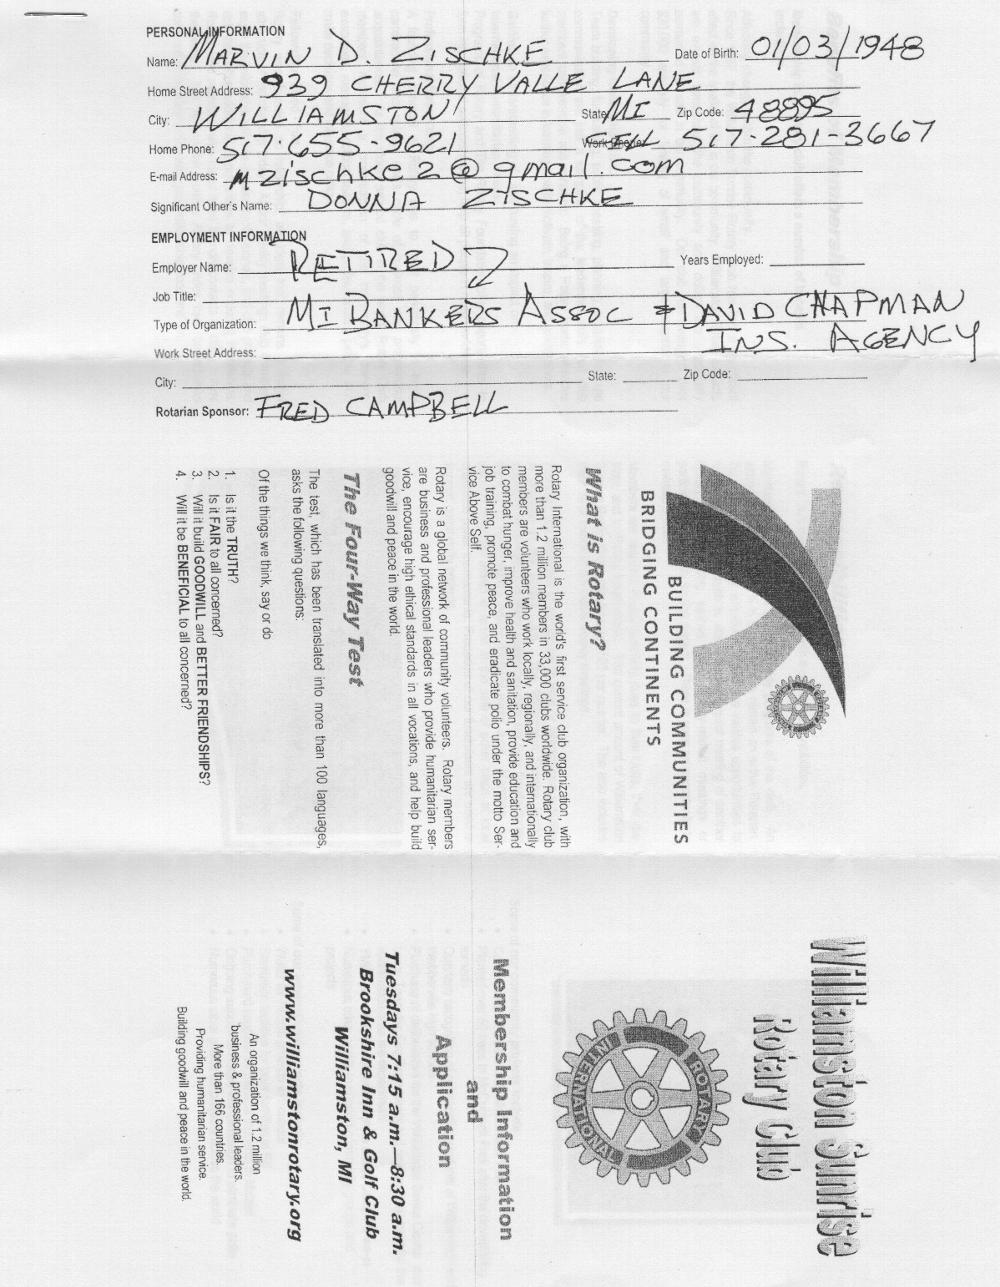 PERSONAL INFORMATION
Name: MARVIN D. ZISCHKE Date of Birth: 01/03/1948
Home Street Address: 939 CHERRY VALLE LANE
City: WILLIAMSTON State: MI Zip Code: 48895
Home Phone: 517.655-9621 CELL 517-281-3667
E-mail Address: mzischke2@gmail.com
Significant Other's Name: DONNA ZISCHKE
EMPLOYMENT INFORMATION
Employer Name: RETIRED Years Employed:
Job Title:
Type of Organization: MI BANKERS ASSOC & DAVID CHAPMAN
INS. AGENCY
Work Street Address:
City: State: Zip Code:
Rotarian Sponsor: FRED CAMPBELL
BUILDING COMMUNITIES
BRIDGING CONTINENTS
What is Rotary?
Rotary International is the world's first service club organization, with
more than 1.2 million members in 33,000 clubs worldwide. Rotary club
members are volunteers who work locally, regionally, and internationally
to combat hunger, improve health and sanitation, provide education and
job training, promote peace, and eradicate polio under the motto Ser-
vice Above Self.
Rotary is a global network of community volunteers. Rotary members
are business and professional leaders who provide humanitarian ser-
vice, encourage high ethical standards in all vocations, and help build
goodwill and peace in the world.
The Four-Way Test
The test, which has been translated into more than 100 languages,
asks the following questions:
Of the things we think, say or do
1. Is it the TRUTH?
2. Is it FAIR to all concerned?
3. Will it build GOODWILL and BETTER FRIENDSHIPS?
4. Will it be BENEFICIAL to all concerned?
Williamston Sunrise
Rotary Club
ROTARY
INTERNATIONAL
Membership Information
and
Application
Tuesdays 7:15 a.m.—8:30 a.m.
Brookshire Inn & Golf Club
Williamston, MI
www.williamstonrotary.org
An organization of 1.2 million
business & professional leaders.
More than 166 countries.
Providing humanitarian service.
Building goodwill and peace in the world.